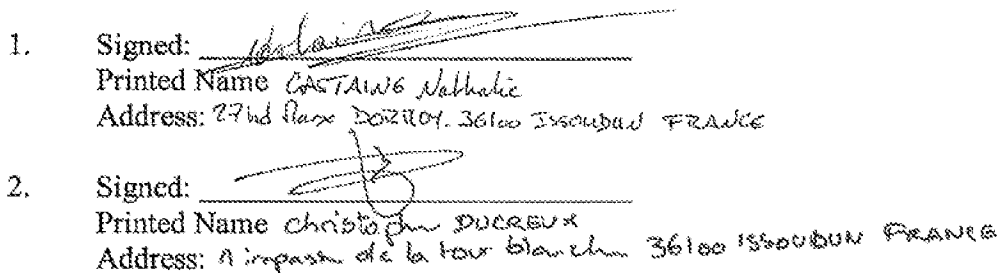 1. Signed:
Printed Name CASTAING Nathalie
Address: 27 bd DORMOY. 36100 ISSOUDUN FRANCE
2. Signed:
Printed Name christophe DUCREUX
Address: 1 impasse de la tour blanche 36100 ISSOUDUN FRANCE